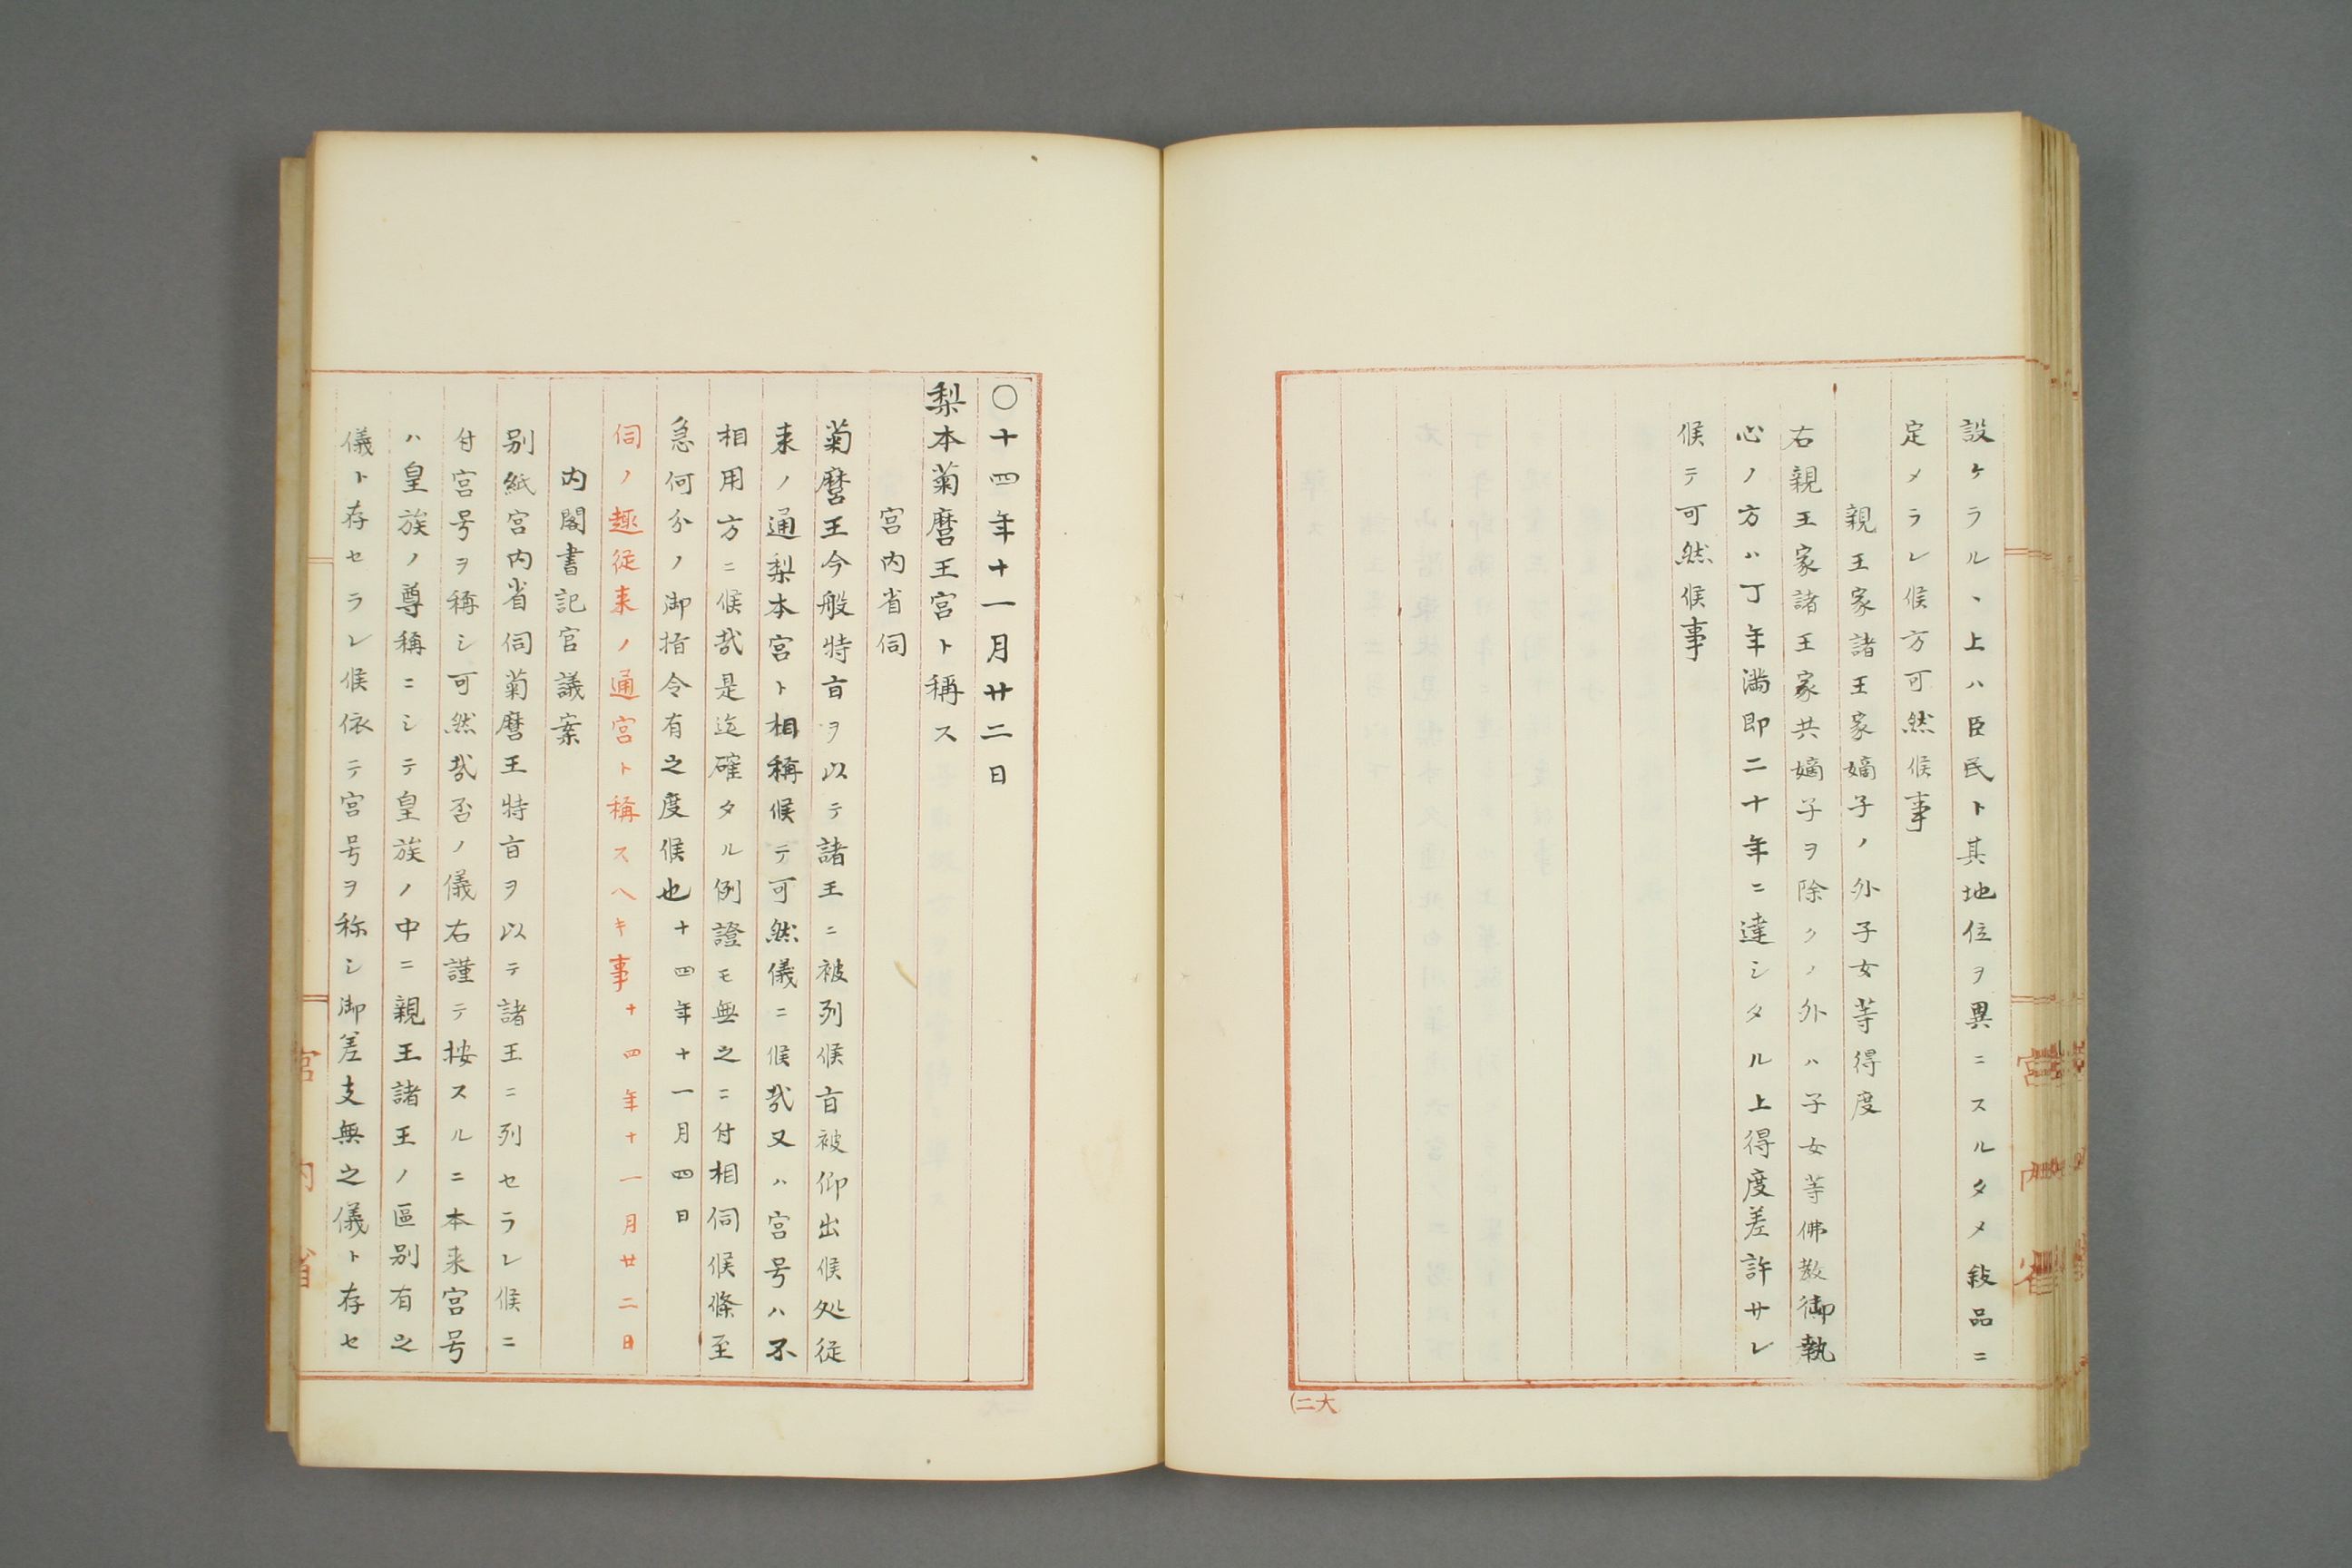 設ケラルヽ上ハ臣民ト其地位ヲ異ニスルタメ敍品ニ
定メラレ候方可然候事
親王家諸王家嫡子ノ外子女等得度
右親王家諸王家共嫡子ヲ除クノ外ハ子女等佛教御執
心ノ方ハ丁年満即二十年ニ達シタル上得度差許サレ
候テ可然候事
○十四年十一月廿二日
梨本菊麿王宮ト稱ス
宮内省伺
菊麿王今般特㫖ヲ以テ諸王ニ被列候㫖被仰出候処従
来ノ通梨本宮ト相稱候テ可然儀ニ候哉又ハ宮号ハ不
相用方ニ候哉是迄確タル例證モ無之ニ付相伺候條至
急何分ノ御指令有之度候也十四年十一月四日
伺ノ趣従来ノ通宮ト稱スヘキ事十四年十一月廿二日
内閣書記官議案
別紙宮内省伺菊麿王特㫖ヲ以テ諸王ニ列セラレ候ニ
付宮号ヲ稱シ可然哉否ノ儀右謹テ按スルニ本来宮号
ハ皇族ノ尊稱ニシテ皇族ノ中ニ親王諸王ノ區別有之
儀ト存セラレ候依テ宮号ヲ称シ御差支無之儀ト存セ
宮内省